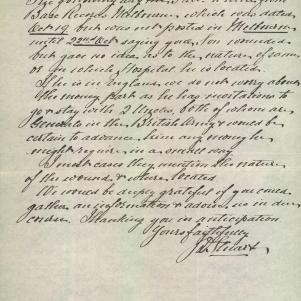 Base Records Melbourne, which was dated
Oct 19 but was not posted in Melbourne
until 22nd Oct saying your Son wounded
but gave no idea as to the nature of same
or in which Hospital he is located.
If he is in England, we need not worry about
the money part as he has invitations to
go & stay with 2 Uncles, both of whom are
in the British Army & would be
certain to advance him any money he
might require in a small way
In most cases they mention the nature
of the wound & where located
We would be deeply grateful if you could
gather any information & advise us in due
course. Thanking you in anticipation
Yours faithfully